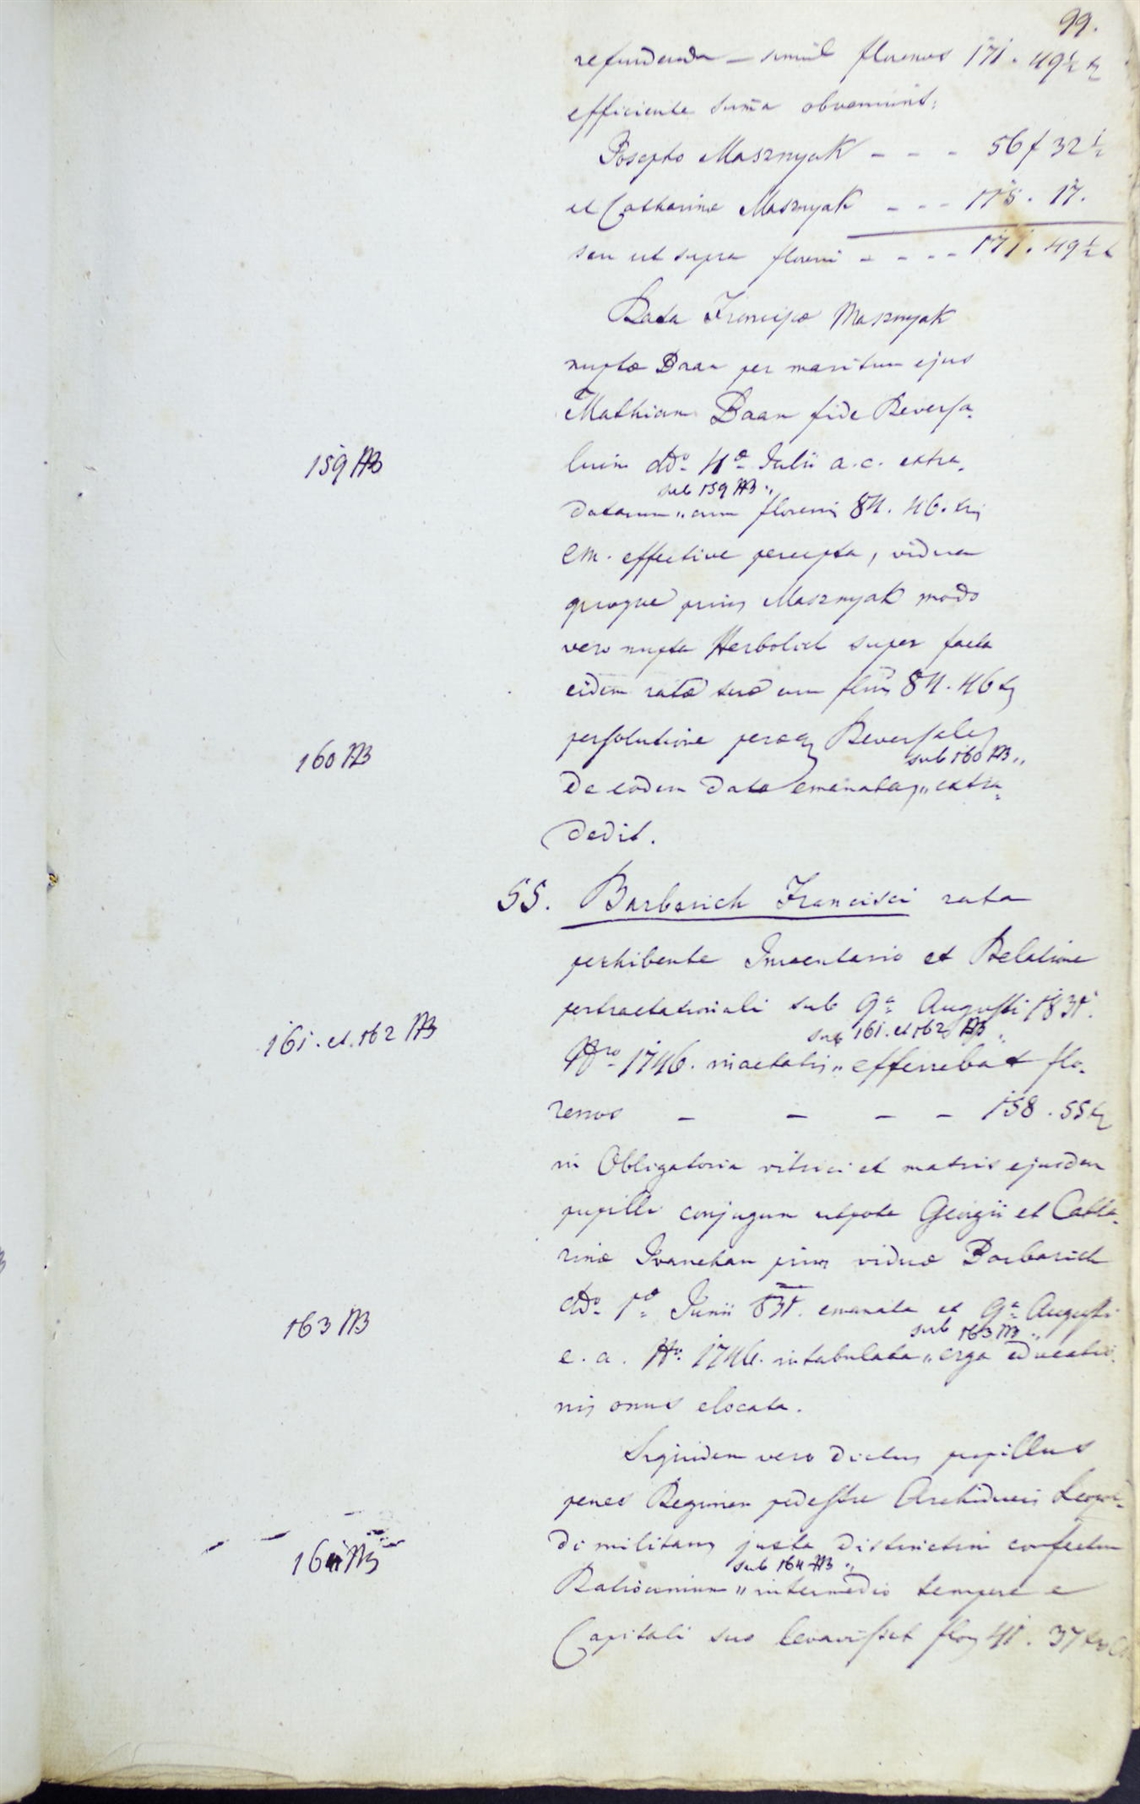 99.
refundenda – simul florenos 171. 49½ xr
efficiente suma obvenirent:
Josepho Masznyak - - - 56 f 32½
et Catharinæ Masznyak - - - 115. 17.
seu ut supra floreni - - - - 171. 49½ x
Rata Franciscæ Masznyak
nuptæ Baan per maritum ejus
Mathiam Baan fide Reversa-
159 AB
lium ddo 4a Julii a. c. extra-
sub 159 AB „
datarum „ cum florenis 84. 46. xris
CM. effective percepta, vidua
quoque prius Masznyak modo
vero nupta Herbolich super facta
eidem ratæ suæ cum flnis 84. 46 x
persolutione peræque Reversales
160 AB
sub 160 AB „
de eodem dato emanatas „ extra-
dedit.
55. Barbarich Francisci rata
perhibente Inventario et Relatione
pertractationali sub 9a Augusti 1831.
161. et 162 AB
sub 161. et 162 AB „
Nro 1746. inactatis „ efferebat flo-
renos – – – – 158. 55 xr
in Obligatoria vitrici et matris ejusdem
pupilli conjugum utpote Georgii et Catha-
rinæ Ivanchan prius viduæ Barbarich
163 AB
ddo 1a Junii 831. emanata et 9a Augusti
sub 163 AB „
e. a. Nro 1746. intabulata „ erga educatio-
nis onus elocata.
Siquidem vero dictus pupillus
penes Regimen pedestre Archiducis Leopol-
di militans juxta distinctim confectum
164 AB
sub 164 AB „
Ratiocinium „ intermedio tempore e
Capitali suo levavisset flos 41. 37 xr